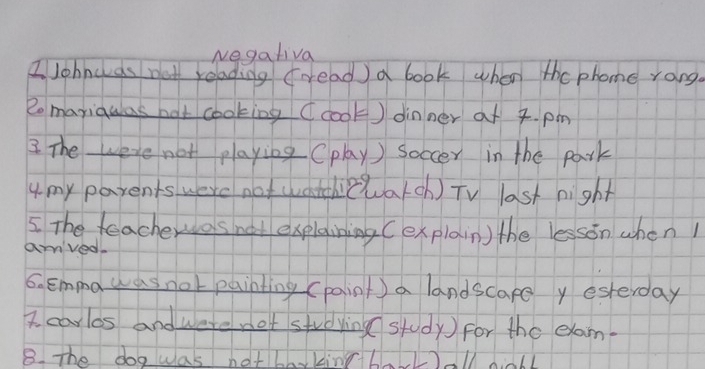 Negativa
1. John was not reading (read) a book when the phome rang.
2. maria was not cooking (cook) dinner at 7.pm
3. The were not playing (play) soccer in the park
4. my parents were not watching (watch) TV last night
5. The teacher was not explaining (explain) the lesson when I
arrived.
6. Emma was not painting (paint) a landscape y esterday
7. carlos and were not studying (study) for the exam.
8. The dog was not barking (bark) all night